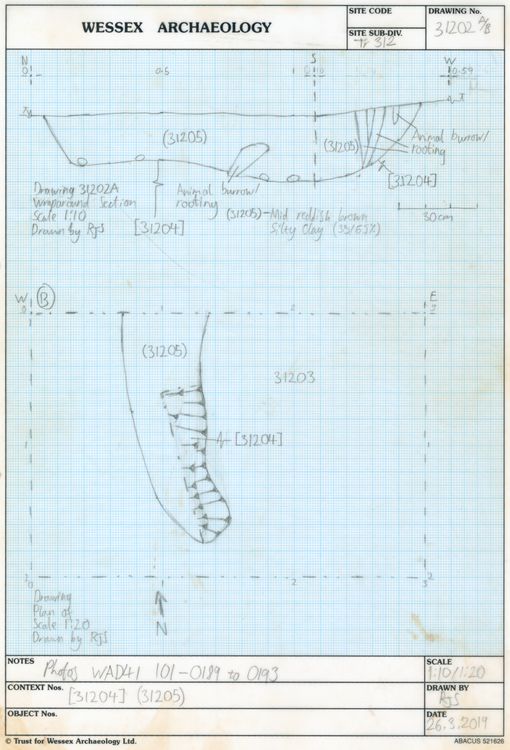 WESSEX ARCHAEOLOGY
SITE CODE
SITE SUB-DIV.
Tr 312
DRAWING No.
31202 A/B
N
0
0.5
1
S
W
0.59
(31205)
(31205)
Animal burrow/
rooting
[31204]
Drawing 31202A
Wraparound Section
Scale 1:10
Drawn by RJS
[31204]
Animal burrow/
rooting
(31205) - Mid reddish brown
Silty Clay (35/65%)
30cm
W
B
E
0
1
2
3
(31205)
31203
[31204]
0
1
2
3
Drawing
Plan of
Scale 1:20
Drawn by RJS
N
NOTES
Photos WAD41 101-0189 to 0193
CONTEXT Nos.
[31204] (31205)
OBJECT Nos.
SCALE
1:10/1:20
DRAWN BY
RJS
DATE
26.3.2019
© Trust for Wessex Archaeology Ltd.
ABACUS 521626